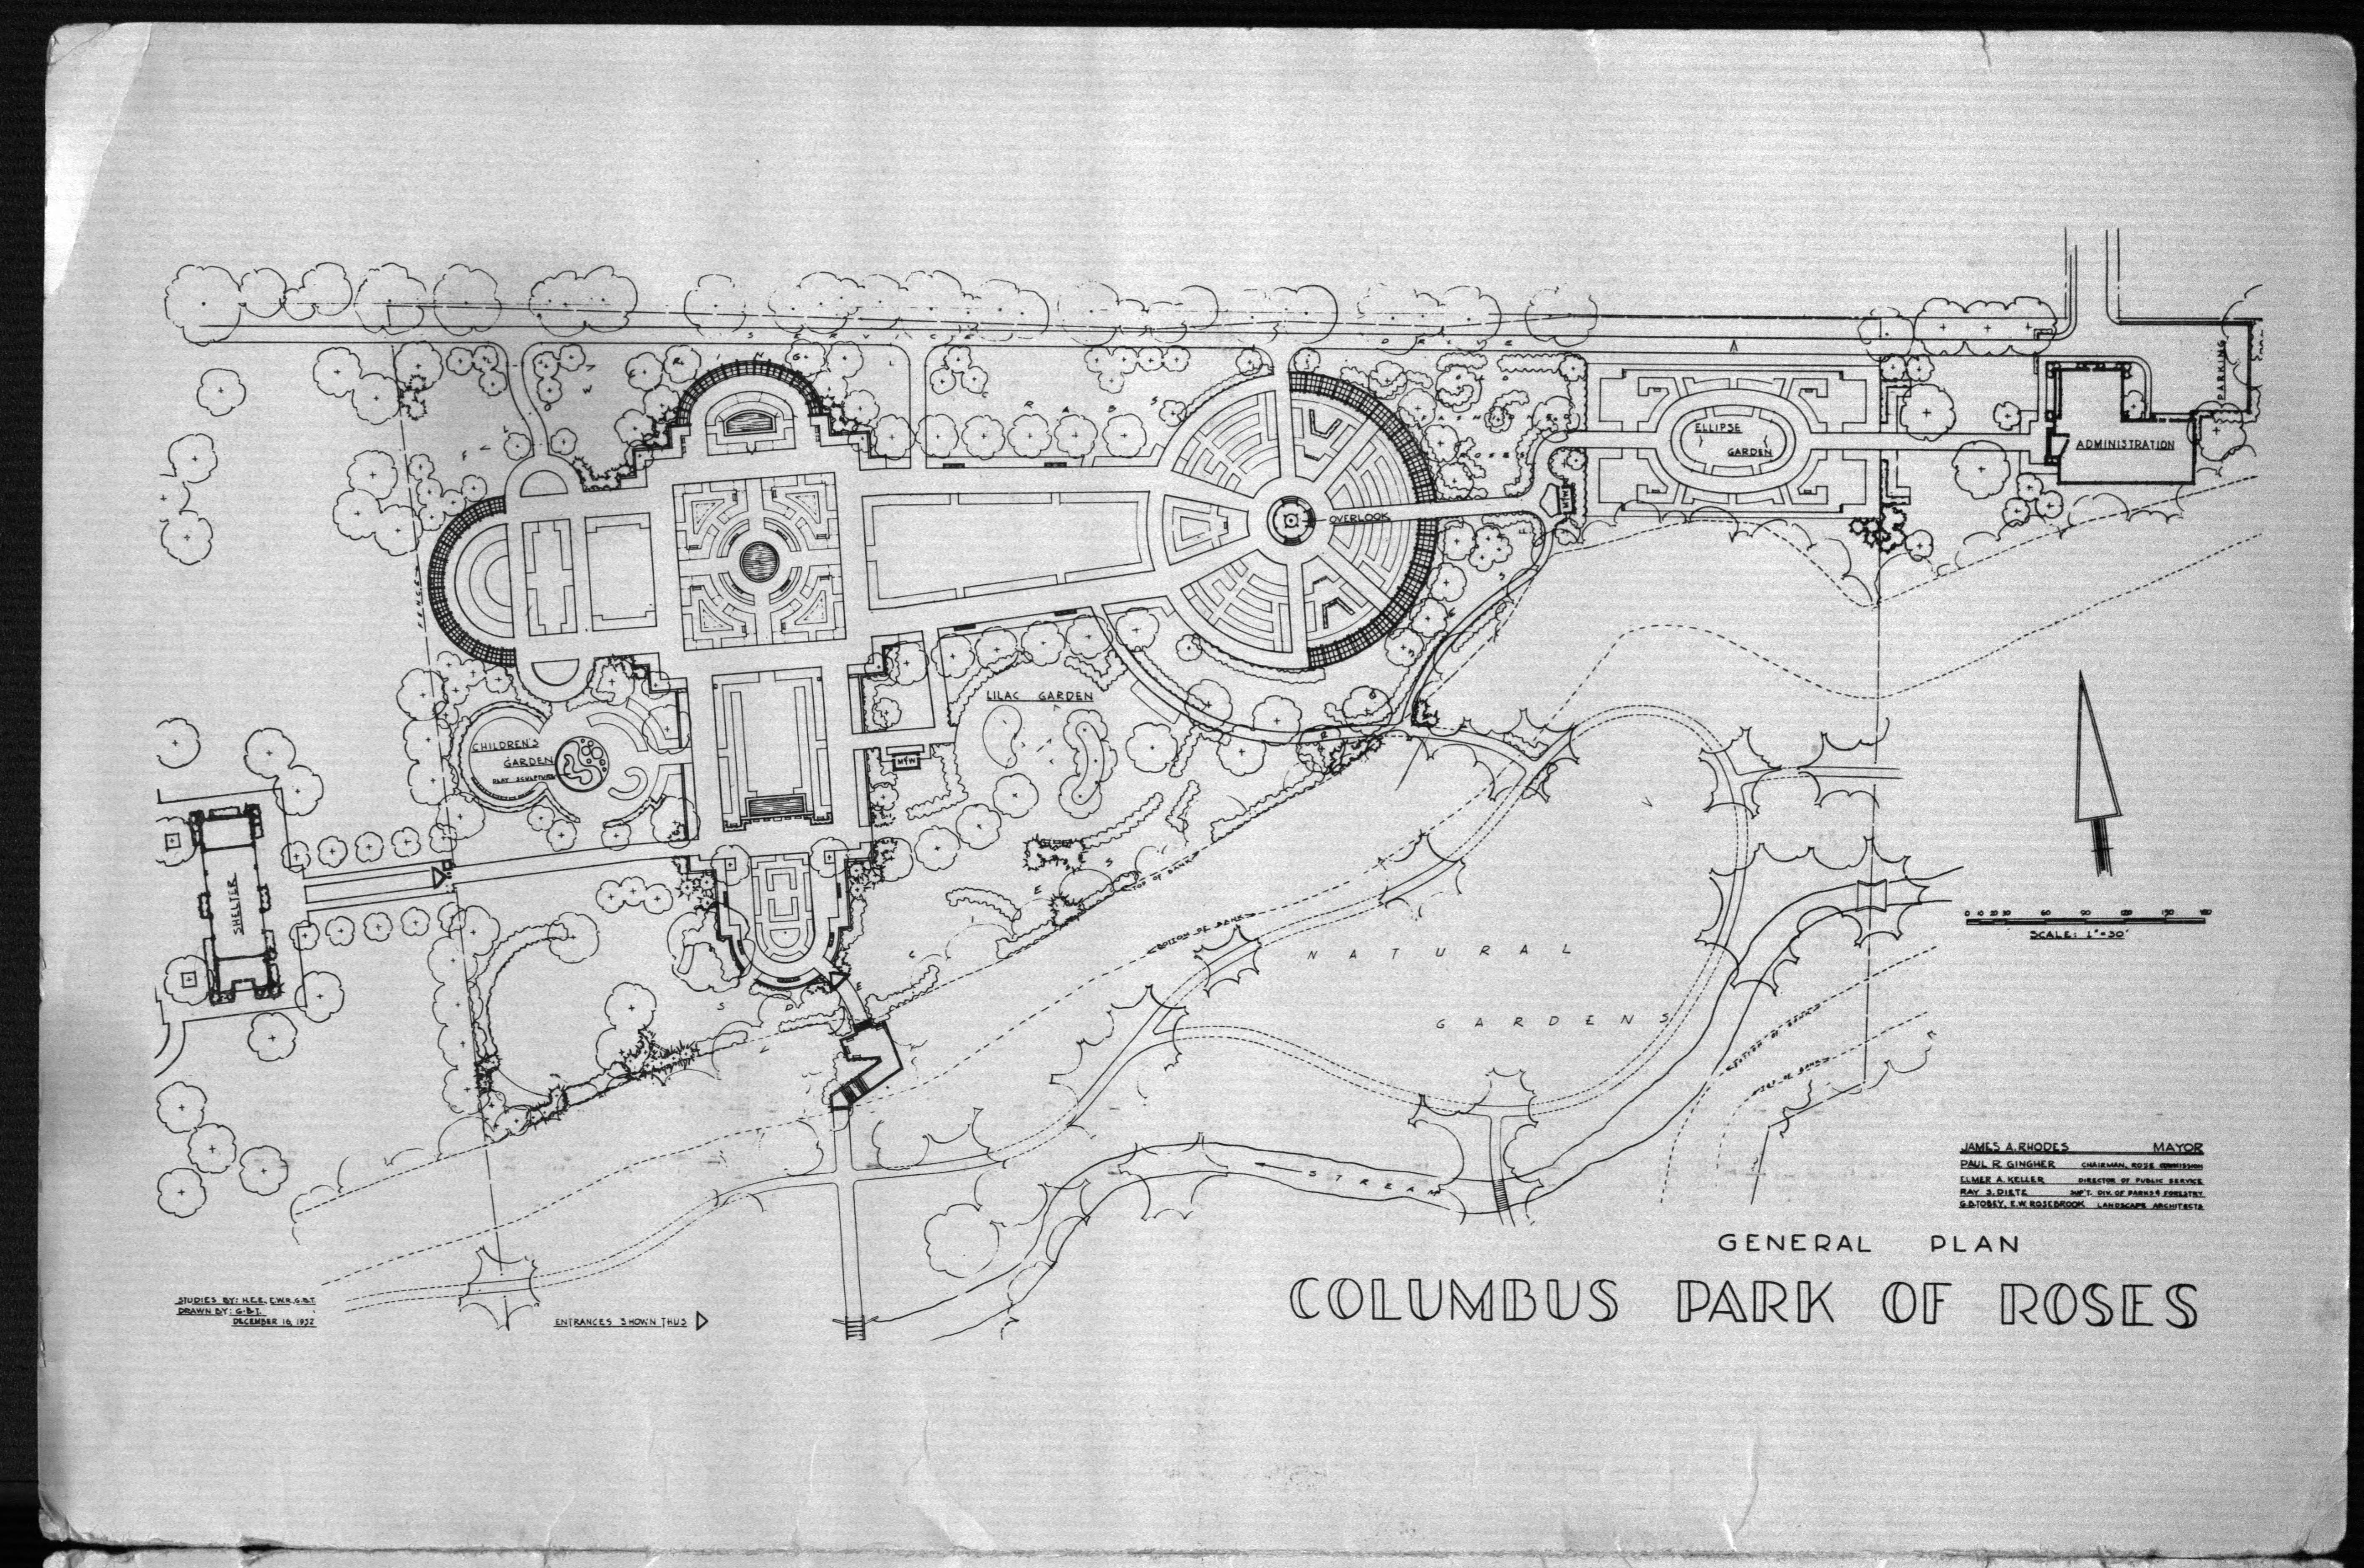 SERVICE DRIVE
SPRING
CRABS
FENCE
OVERLOOK
ELLIPSE
GARDEN
ADMINISTRATION
PARKING
LILAC GARDEN
CHILDREN'S
GARDEN
PLAY SCULPTURE
M & W
SHELTER
BOTTOM OF BANK
NATURAL
GARDENS
STREAM
SCALE: 1"=30'
JAMES A. RHODES MAYOR
PAUL R. GINGHER CHAIRMAN, ROSE COMMISSION
ELMER A. KELLER DIRECTOR OF PUBLIC SERVICE
RAY S. DIETZ SUP'T. DIV. OF PARKS & FORESTRY
G.B.TOBEY, E.W. ROSEBROOK LANDSCAPE ARCHITECTS
GENERAL PLAN
COLUMBUS PARK OF ROSES
STUDIES BY: H.E.E. E.W.R. G.B.T.
DRAWN BY: G.B.T.
DECEMBER 16, 1952
ENTRANCES SHOWN THUS